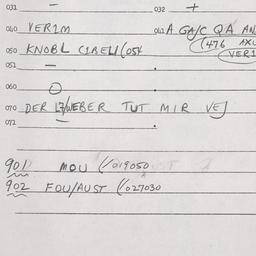 031 — 032 +
040 VERIM 042 A GA/C QA AN
(476 AXL
050 KNOBL CIRELI (054 VERI
051 —
060 O
070 DER WEBER TUT MIR
072 —
901 MOU (/019050
902 FOU/AUST (/027030